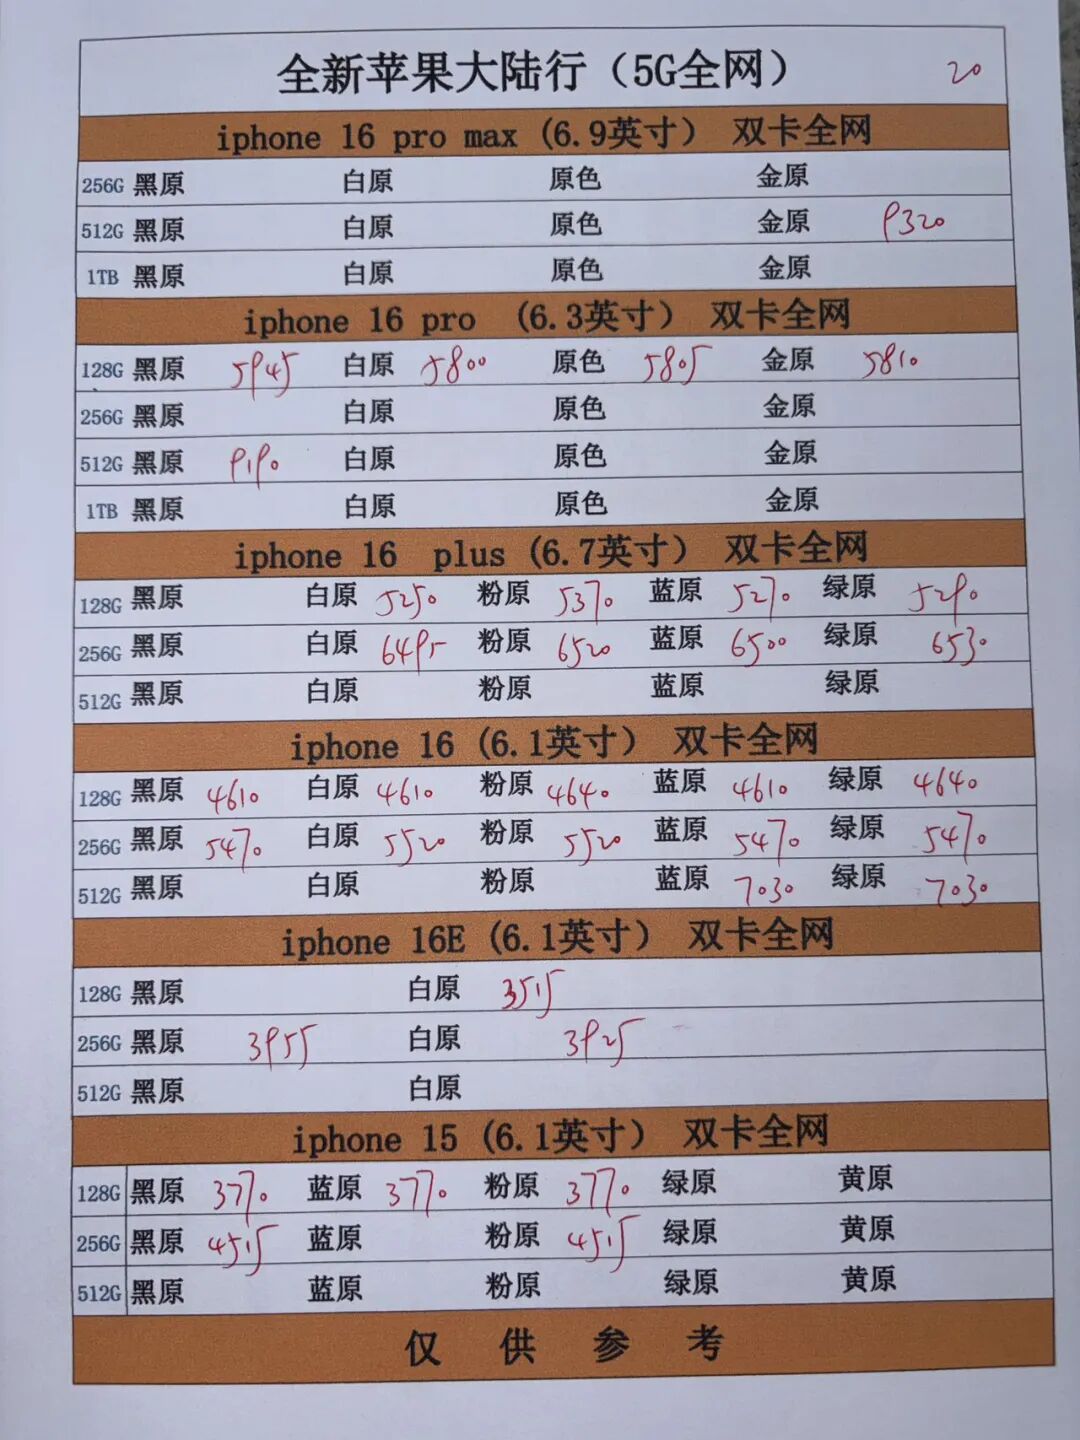 全新苹果大陆行（5G全网） 20
iphone 16 pro max (6.9英寸） 双卡全网
256G 黑原 白原 原色 金原
512G 黑原 白原 原色 金原 9320
1TB 黑原 白原 原色 金原
iphone 16 pro （6.3英寸） 双卡全网
128G 黑原 5945 白原 5800 原色 5805 金原 5810
256G 黑原 白原 原色 金原
512G 黑原 9190 白原 原色 金原
1TB 黑原 白原 原色 金原
iphone 16 plus (6.7英寸） 双卡全网
128G 黑原 白原 5250 粉原 5370 蓝原 5270 绿原 5290
256G 黑原 白原 6495 粉原 6520 蓝原 6500 绿原 6530
512G 黑原 白原 粉原 蓝原 绿原
iphone 16 (6.1英寸） 双卡全网
128G 黑原 4610 白原 4610 粉原 4640 蓝原 4610 绿原 4640
256G 黑原 5470 白原 5520 粉原 5520 蓝原 5470 绿原 5470
512G 黑原 白原 粉原 蓝原 7030 绿原 7030
iphone 16E (6.1英寸） 双卡全网
128G 黑原 白原 3515
256G 黑原 3955 白原 3925
512G 黑原 白原
iphone 15 (6.1英寸） 双卡全网
128G 黑原 3770 蓝原 3770 粉原 3770 绿原 黄原
256G 黑原 4515 蓝原 粉原 4515 绿原 黄原
512G 黑原 蓝原 粉原 绿原 黄原
仅供参考